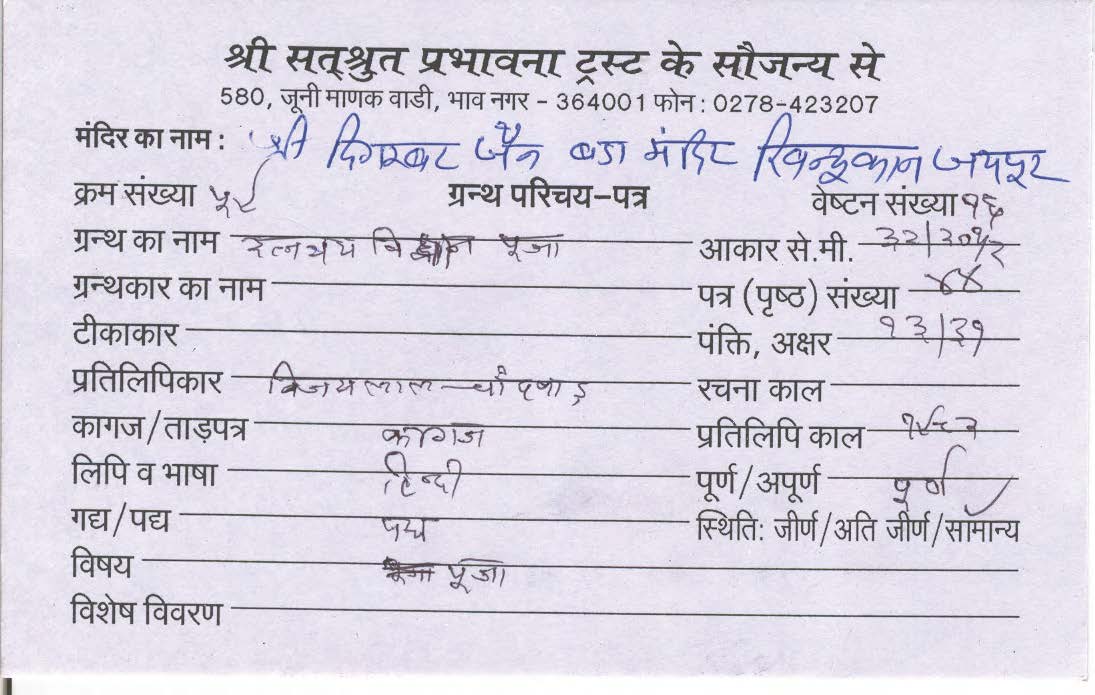 श्री सत्श्रुत प्रभावना ट्रस्ट के सौजन्य से
580, जूनी माणक वाडी, भाव नगर - 364001 फोन : 0278-423207
मंदिर का नाम : श्री दिगम्बर जैन बडा मंदिर जयपूर
क्रम संख्या ग्रन्थ परिचय-पत्र वेष्टन संख्या १६
ग्रन्थ का नाम रत्नत्रय विधान पूजा आकार से.मी.
ग्रन्थकार का नाम पत्र (पृष्ठ) संख्या ४४
टीकाकार पंक्ति, अक्षर १३/३१
प्रतिलिपिकार विजयलाल रचना काल
कागज/ताड़पत्र कागज प्रतिलिपि काल
लिपि व भाषा हिन्दी पूर्ण/अपूर्ण पूर्ण
गद्य/पद्य पद्य स्थिति: जीर्ण/अति जीर्ण/सामान्य
विषय पूजा
विशेष विवरण